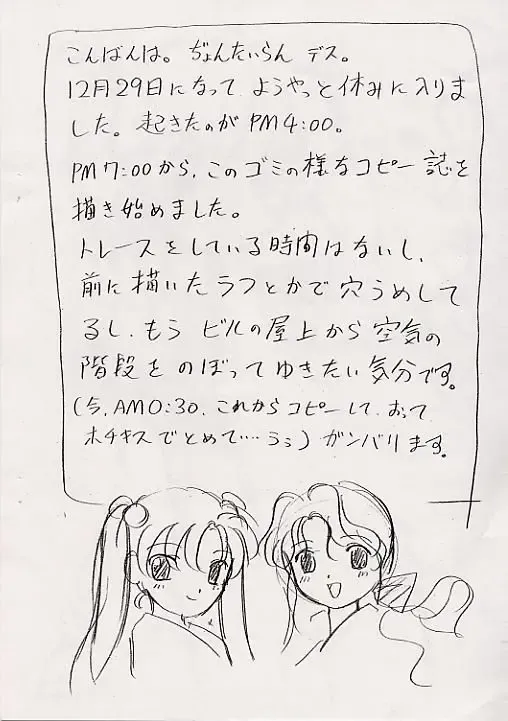 こんばんは。ぢょんたいらん デス。
12月29日になって ようやっと休みに入りま
した。起きたのが PM4:00。
PM7:00から、このゴミの様なコピー誌を
描き始めました。
トレースをしている時間はないし、
前に描いたラフとかで穴うめして
るし、もう ビルの屋上から空気の
階段を のぼって ゆきたい気分です。
(今、AM0:30、これからコピーして、おって
ホチキスでとめて…うぅ) ガンバリます。